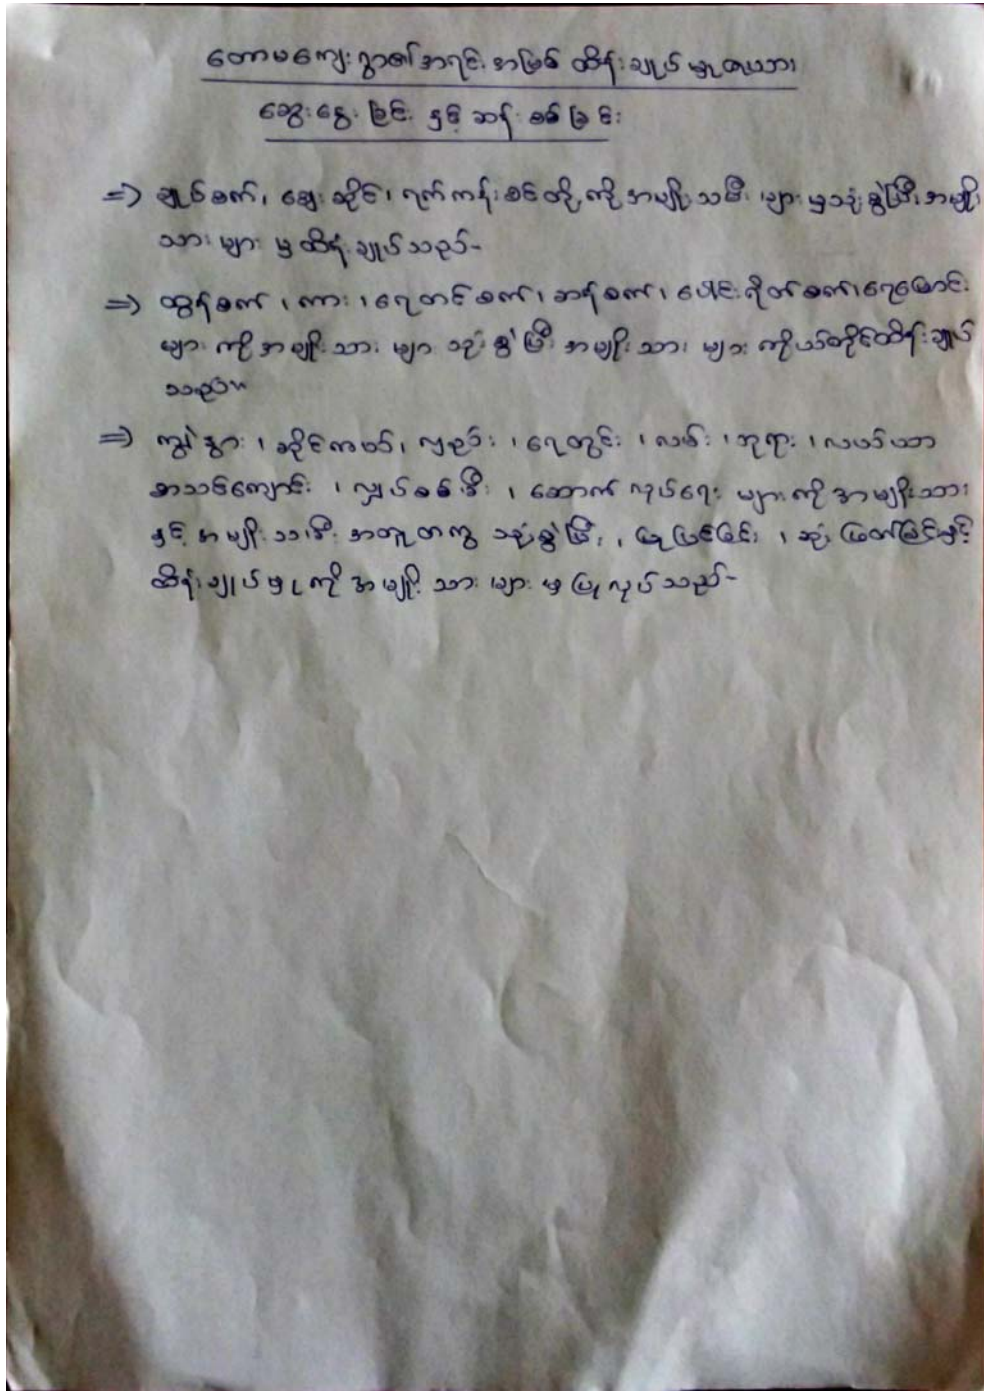 တောမကျေးရွာ၏အရင်းအမြစ် ထိန်းချုပ်မှုဇယား
ဆွေးနွေးခြင်း နှင့် ဆန်းစစ်ခြင်း
⇒ ချုပ်စက်၊ ဈေးဆိုင်၊ ရက်ကန်းစင်တို့ကို အမျိုးသမီးများမှသုံးစွဲပြီးအမျိုး
သားများမှထိန်းချုပ်သည်-
⇒ ထွန်စက်၊ ကား၊ ရေတင်စက်၊ ဆန်စက်၊ ပေါင်းရိတ်စက်၊ရေမြောင်း
များကိုအမျိုးသားများသုံးစွဲပြီးအမျိုးသားများကိုယ်တိုင်ထိန်းချုပ်
သည်။
⇒ ကျွဲနွား၊ ဆိုင်ကယ်၊ လှည်း၊ ရေတွင်း၊ လမ်း၊ ဘုရား၊ လယ်ယာ
စာသင်ကျောင်း၊ လျှပ်စစ်မီး၊ ဆောက်လုပ်ရေးများကိုအမျိုးသား
နှင့်အမျိုးသမီးအတူတကွသုံးစွဲပြီး၊ ပြုပြင်ခြင်း၊ ဆုံးဖြတ်ခြင်းနှင့်
ထိန်းချုပ်မှုကိုအမျိုးသားများမှပြုလုပ်သည်-